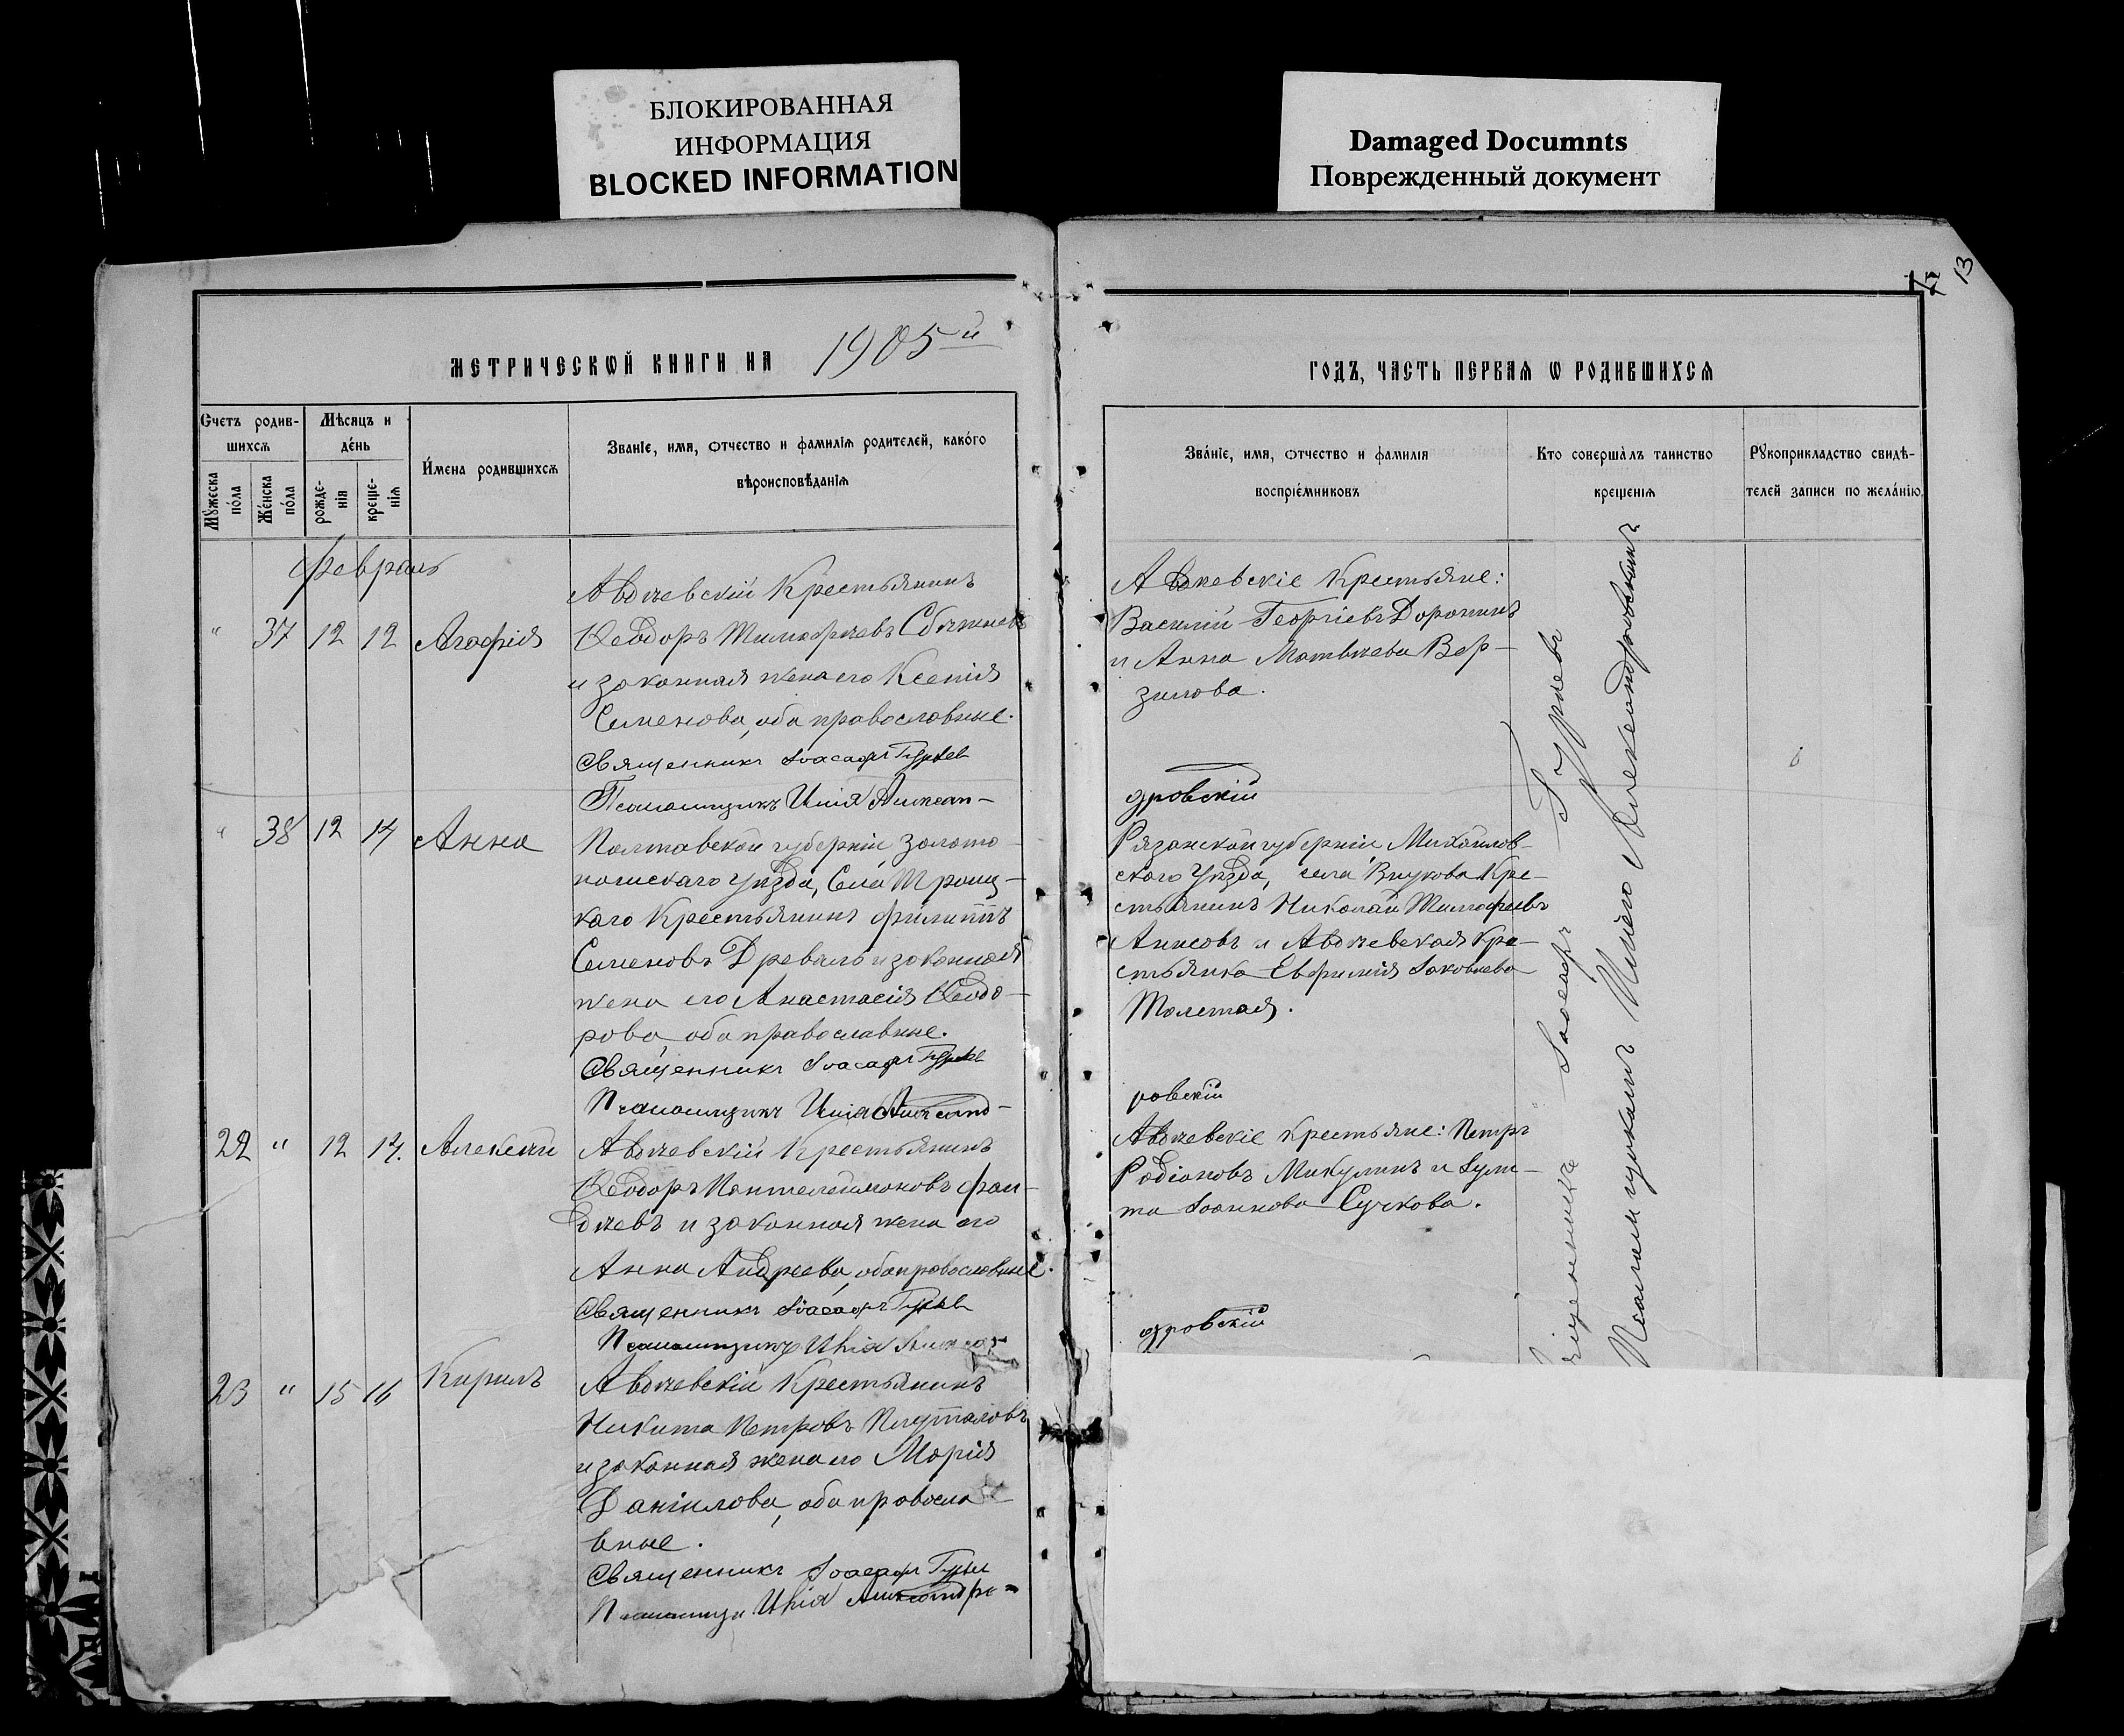 БЛОКИРОВАННАЯ
ИНФОРМАЦИЯ
BLOCKED INFORMATION
Damaged Documnts
Поврежденный документ
13
МЕТРИЧЕСКОЙ КНИГИ НА 1905й
ГОДЪ, ЧАСТЬ ПЕРВАЯ О РОДИВШИХСЯ
Счетъ родив-
шихся
Мужеска
пола
Женска
пола
Мѣсяцъ и
день
рожде-
нія
креще-
нія
Имена родившихся
Званіе, имя, отчество и фамилія родителей, какого
вѣроисповѣданія
Званіе, имя, отчество и фамилія
воспріемниковъ
Кто совершалъ таинство
крещенія
Рукоприкладство свидѣ-
телей записи по желанію
февраль
" 37 12 12 Агафія
Крестьянинъ
Ѳеодоръ
и законная жена его Ксенія
Семенова, оба православные.
Священникъ Іоасафъ Гурьев
Псаломщикъ Илія Алексан-
Крестьяне:
Василій Георгіевъ Доронинъ
и Анна Матвѣева Вер-
зилова.
дровскій
" 38 12 14 Анна
Полтавской губерніи Золото-
ношскаго Уѣзда, Села Троиц-
каго Крестьянинъ Филиппъ
Семеновъ Древаль и законная
жена его Анастасія Ѳеодо-
рова, оба православные.
Священникъ Іоасафъ Гурьев
Псаломщикъ Илія Александ-
Рязанской губерніи Михайлов-
скаго Уѣзда, села Внукова Кре-
стьянинъ Николай Тимофеевъ
Анисовъ и Кре-
стьянка Евфимія Іаковлева
Толстая.
ровскій
22 " 12 14. Алексѣй
Крестьянинъ
Ѳеодоръ Пантелеимоновъ Фан-
дѣевъ и законная жена его
Анна Андреева, оба православные.
Священникъ Іоасафъ Гурьев
Псаломщикъ Илія
Крестьяне: Петръ
Родіоновъ Микулинъ и Іули-
та Іоаннова Сучкова.
дровскій
23 " 15 16 Кирилъ
Крестьянинъ
Никита Петровъ Плуталовъ
и законная жена его Марія
Даніилова, оба правосла-
вные.
Священникъ Іоасафъ Гурьев
Илія Александро-
Іоасафъ Гурьевъ
Псаломщикъ Илія Александровскій